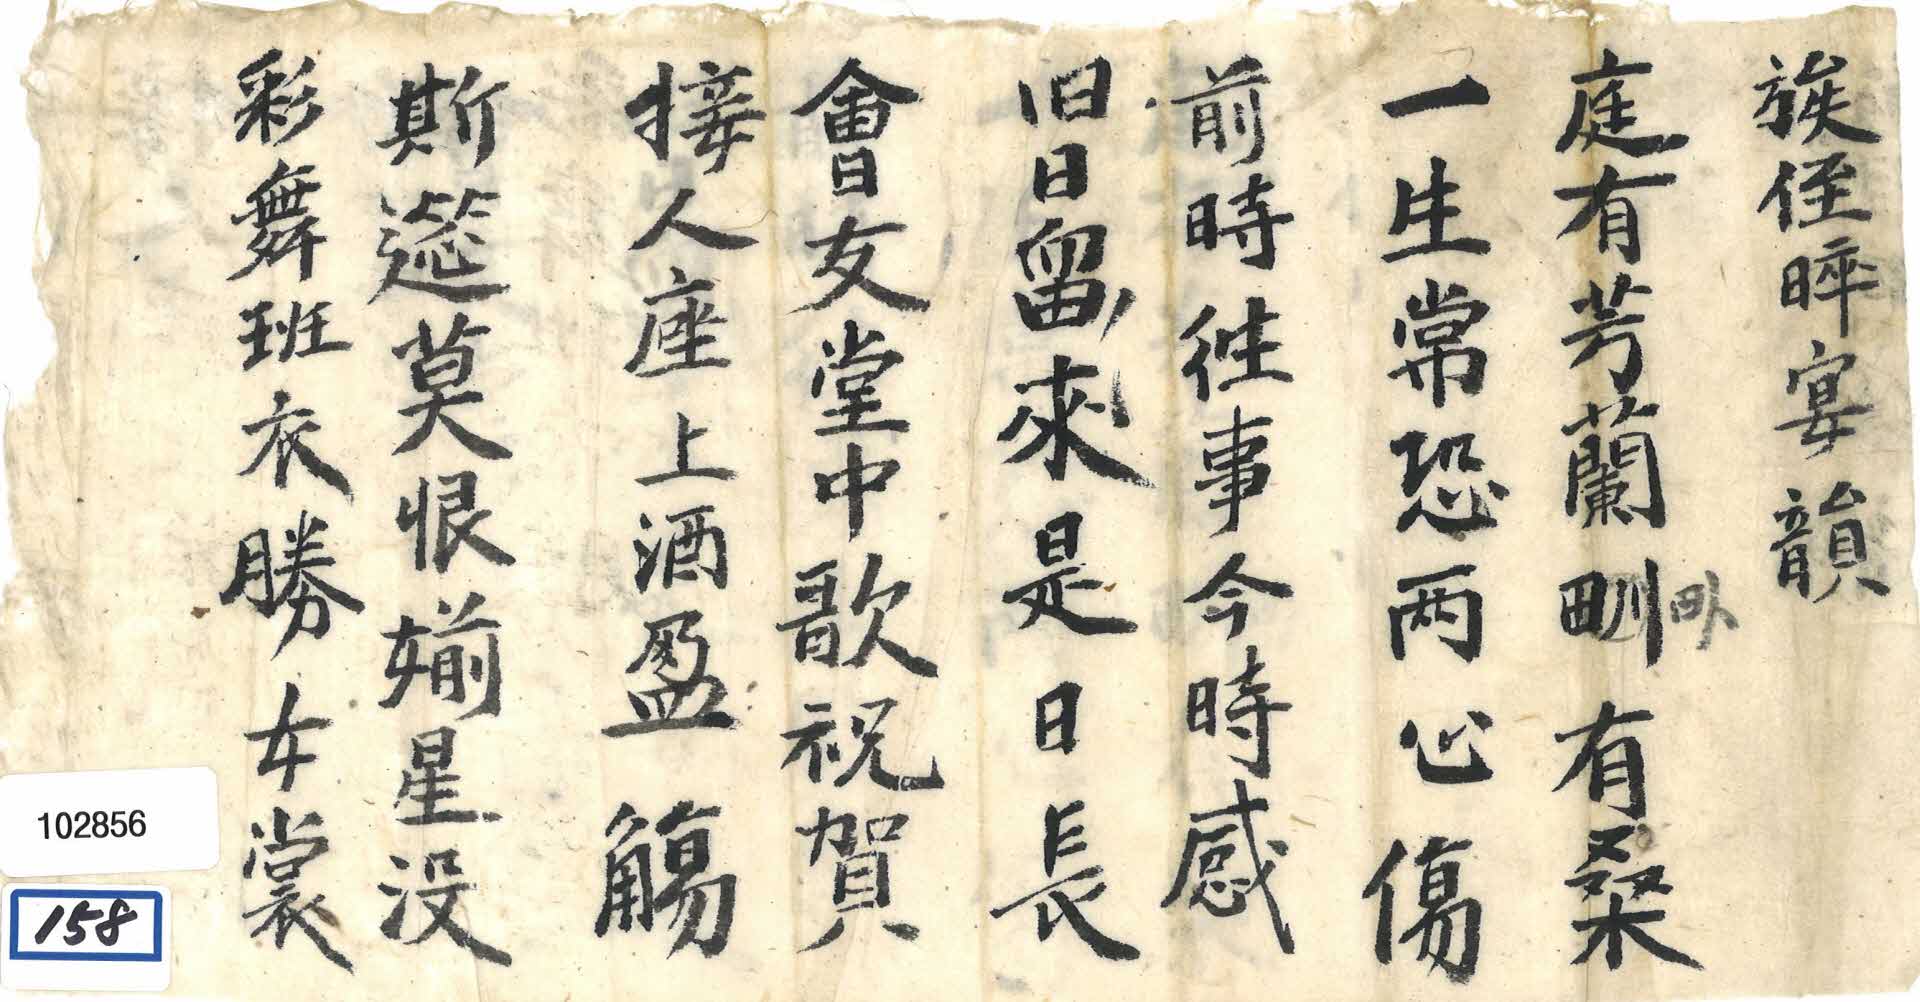 族侄晬宴韻
庭有芳蘭㽛有桑
畂
一生常恐两心傷
前時徃事今時感
旧日留來是日長
會友堂中歌祝賀
接人座上酒盈觴
斯莚莫恨媊星没
彩舞班衣勝女裳
102856
158